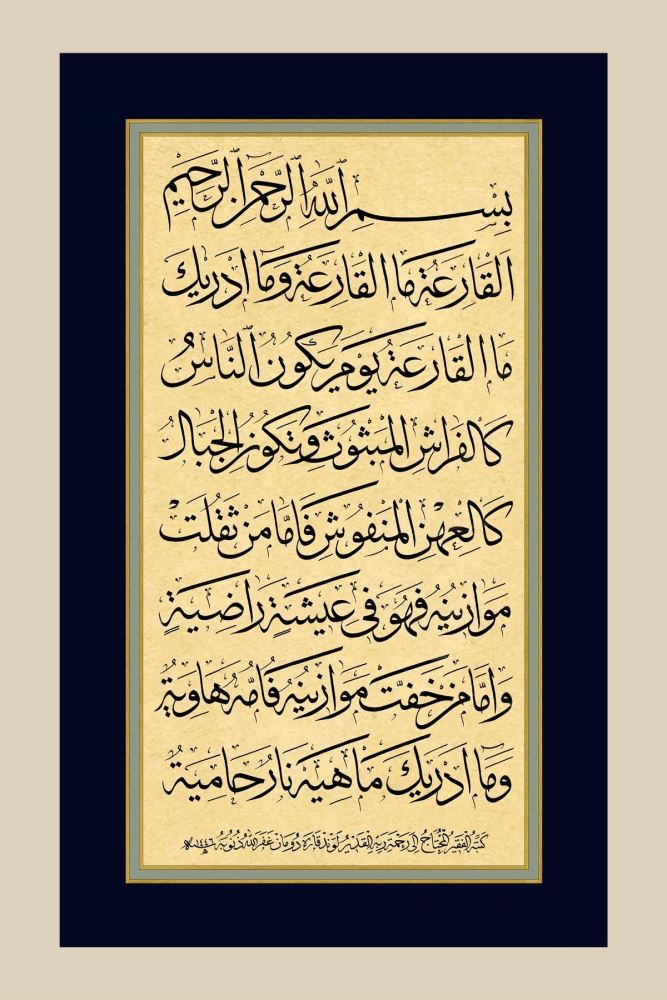 بِسْمِ ٱللّٰهِ ٱلرَّحْمٰنِ ٱلرَّحِيمِ
اَلْقَارِعَةُ مَا الْقَارِعَةُ وَمَا اَدْرٰيكَ
مَا الْقَارِعَةُ يَوْمَ يَكُونُ النَّاسُ
كَالْفَرَاشِ الْمَبْثُوثِ وَتَكُونُ الْجِبَالُ
كَالْعِهْنِ الْمَنْفُوشِ فَاَمَّا مَنْ ثَقُلَتْ
مَوَازِينُهُ فَهُوَ فِى عِيشَةٍ رَاضِيَةٍ
وَاَمَّا مَنْ خَفَّتْ مَوَازِينُهُ فَاُمُّهُ هَاوِيَةٌ
وَمَا اَدْرٰيكَ مَاهِيَهْ نَارٌ حَامِيَةٌ
كتبه الفقير المحتاج الى رحمة ربه القدير لوند قاره دومان غفر الله ذنوبه ١٤٤٦